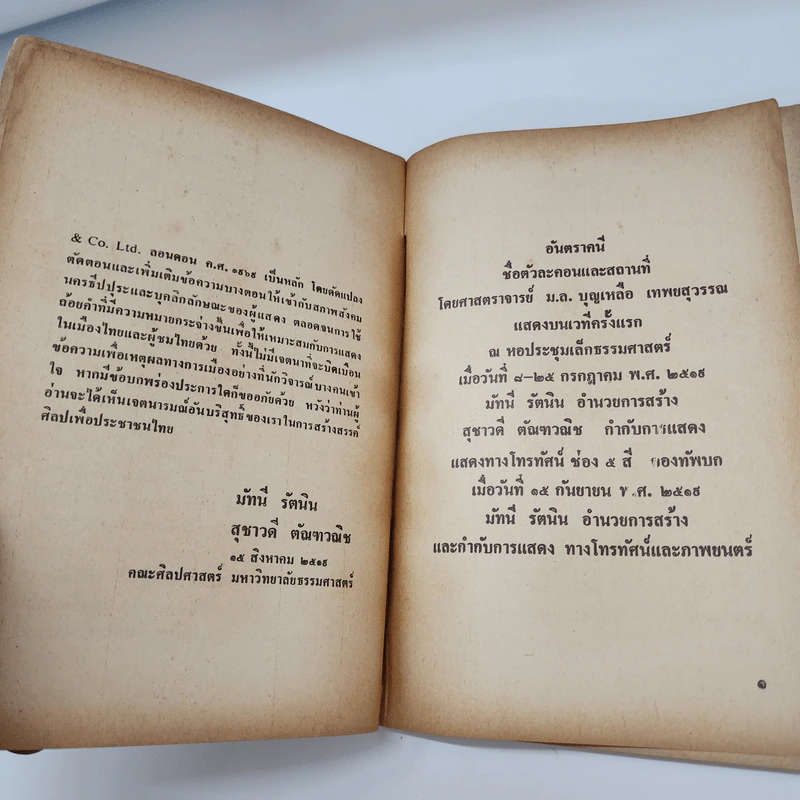 & Co. Ltd. ลอนดอน ค.ศ. ๑๙๖๙ เป็นหลัก โดยดัดแปลง
ตัดตอนและเพิ่มเติมข้อความบางตอนให้เข้ากับสภาพสังคม
นครธีปปุระและบุคลิกลักษณะของผู้แสดง ตลอดจนการใช้
ถ้อยคำที่มีความหมายกระจ่างขึ้นเพื่อให้เหมาะสมกับการแสดง
ในเมืองไทยและผู้ชมไทยด้วย ทั้งนี้ไม่มีเจตนาที่จะบิดเบือน
ข้อความเพื่อเหตุผลทางการเมืองอย่างที่นักวิจารณ์บางคนเข้า
ใจ หากมีข้อบกพร่องประการใดก็ขออภัยด้วย หวังว่าท่านผู้
อ่านจะได้เห็นเจตนารมณ์อันบริสุทธิ์ของเราในการสร้างสรรค์
ศิลปเพื่อประชาชนไทย
มัทนี รัตนิน
สุชาวดี ตัณฑวณิช
๑๕ สิงหาคม ๒๕๑๙
คณะศิลปศาสตร์ มหาวิทยาลัยธรรมศาสตร์
อันตราคนี
ชื่อตัวละคอนและสถานที่
โดยศาสตราจารย์ ม.ล. บุญเหลือ เทพยสุวรรณ
แสดงบนเวทีครั้งแรก
ณ หอประชุมเล็กธรรมศาสตร์
เมื่อวันที่ ๘-๒๕ กรกฎาคม พ.ศ. ๒๕๑๙
มัทนี รัตนิน อำนวยการสร้าง
สุชาวดี ตัณฑวณิช กำกับการแสดง
แสดงทางโทรทัศน์ ช่อง ๕ สี ของทัพบก
เมื่อวันที่ ๑๕ กันยายน พ.ศ. ๒๕๑๙
มัทนี รัตนิน อำนวยการสร้าง
และกำกับการแสดง ทางโทรทัศน์และภาพยนตร์
๑